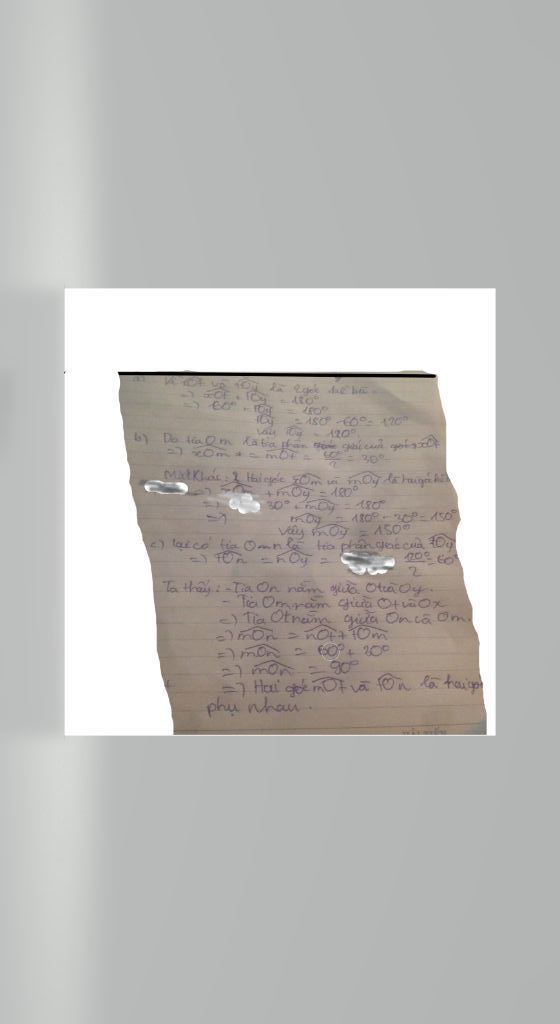 a) Vì xOt và tOy là 2 góc kề bù
=> xOt + tOy = 180°
=> 60° + tOy = 180°
tOy = 180° - 60° = 120°
Vậy tOy = 120°
b) Do tia Om là tia phân giác của góc xOt
=> xOm = mOt = 60°/2 = 30°
Mặt khác: 2 Hai góc xOm và mOy là hai góc kề
+ mOy = 180°
=> 30° + mOy = 180°
=> mOy = 180° - 30° = 150°
Vậy mOy = 150°
c) lại có tia On là tia phân giác của tOy
=> tOn = nOy = 120°/2 = 60°
Ta thấy: - Tia On nằm giữa Ot và Oy.
- Tia Om nằm giữa Ot và Ox
=> Tia Ot nằm giữa On và Om.
=> mOn = nOt + tOm
=> mOn = 60° + 30°
=> mOn = 90°
=> Hai góc mOt và tOn là hai góc
phụ nhau.